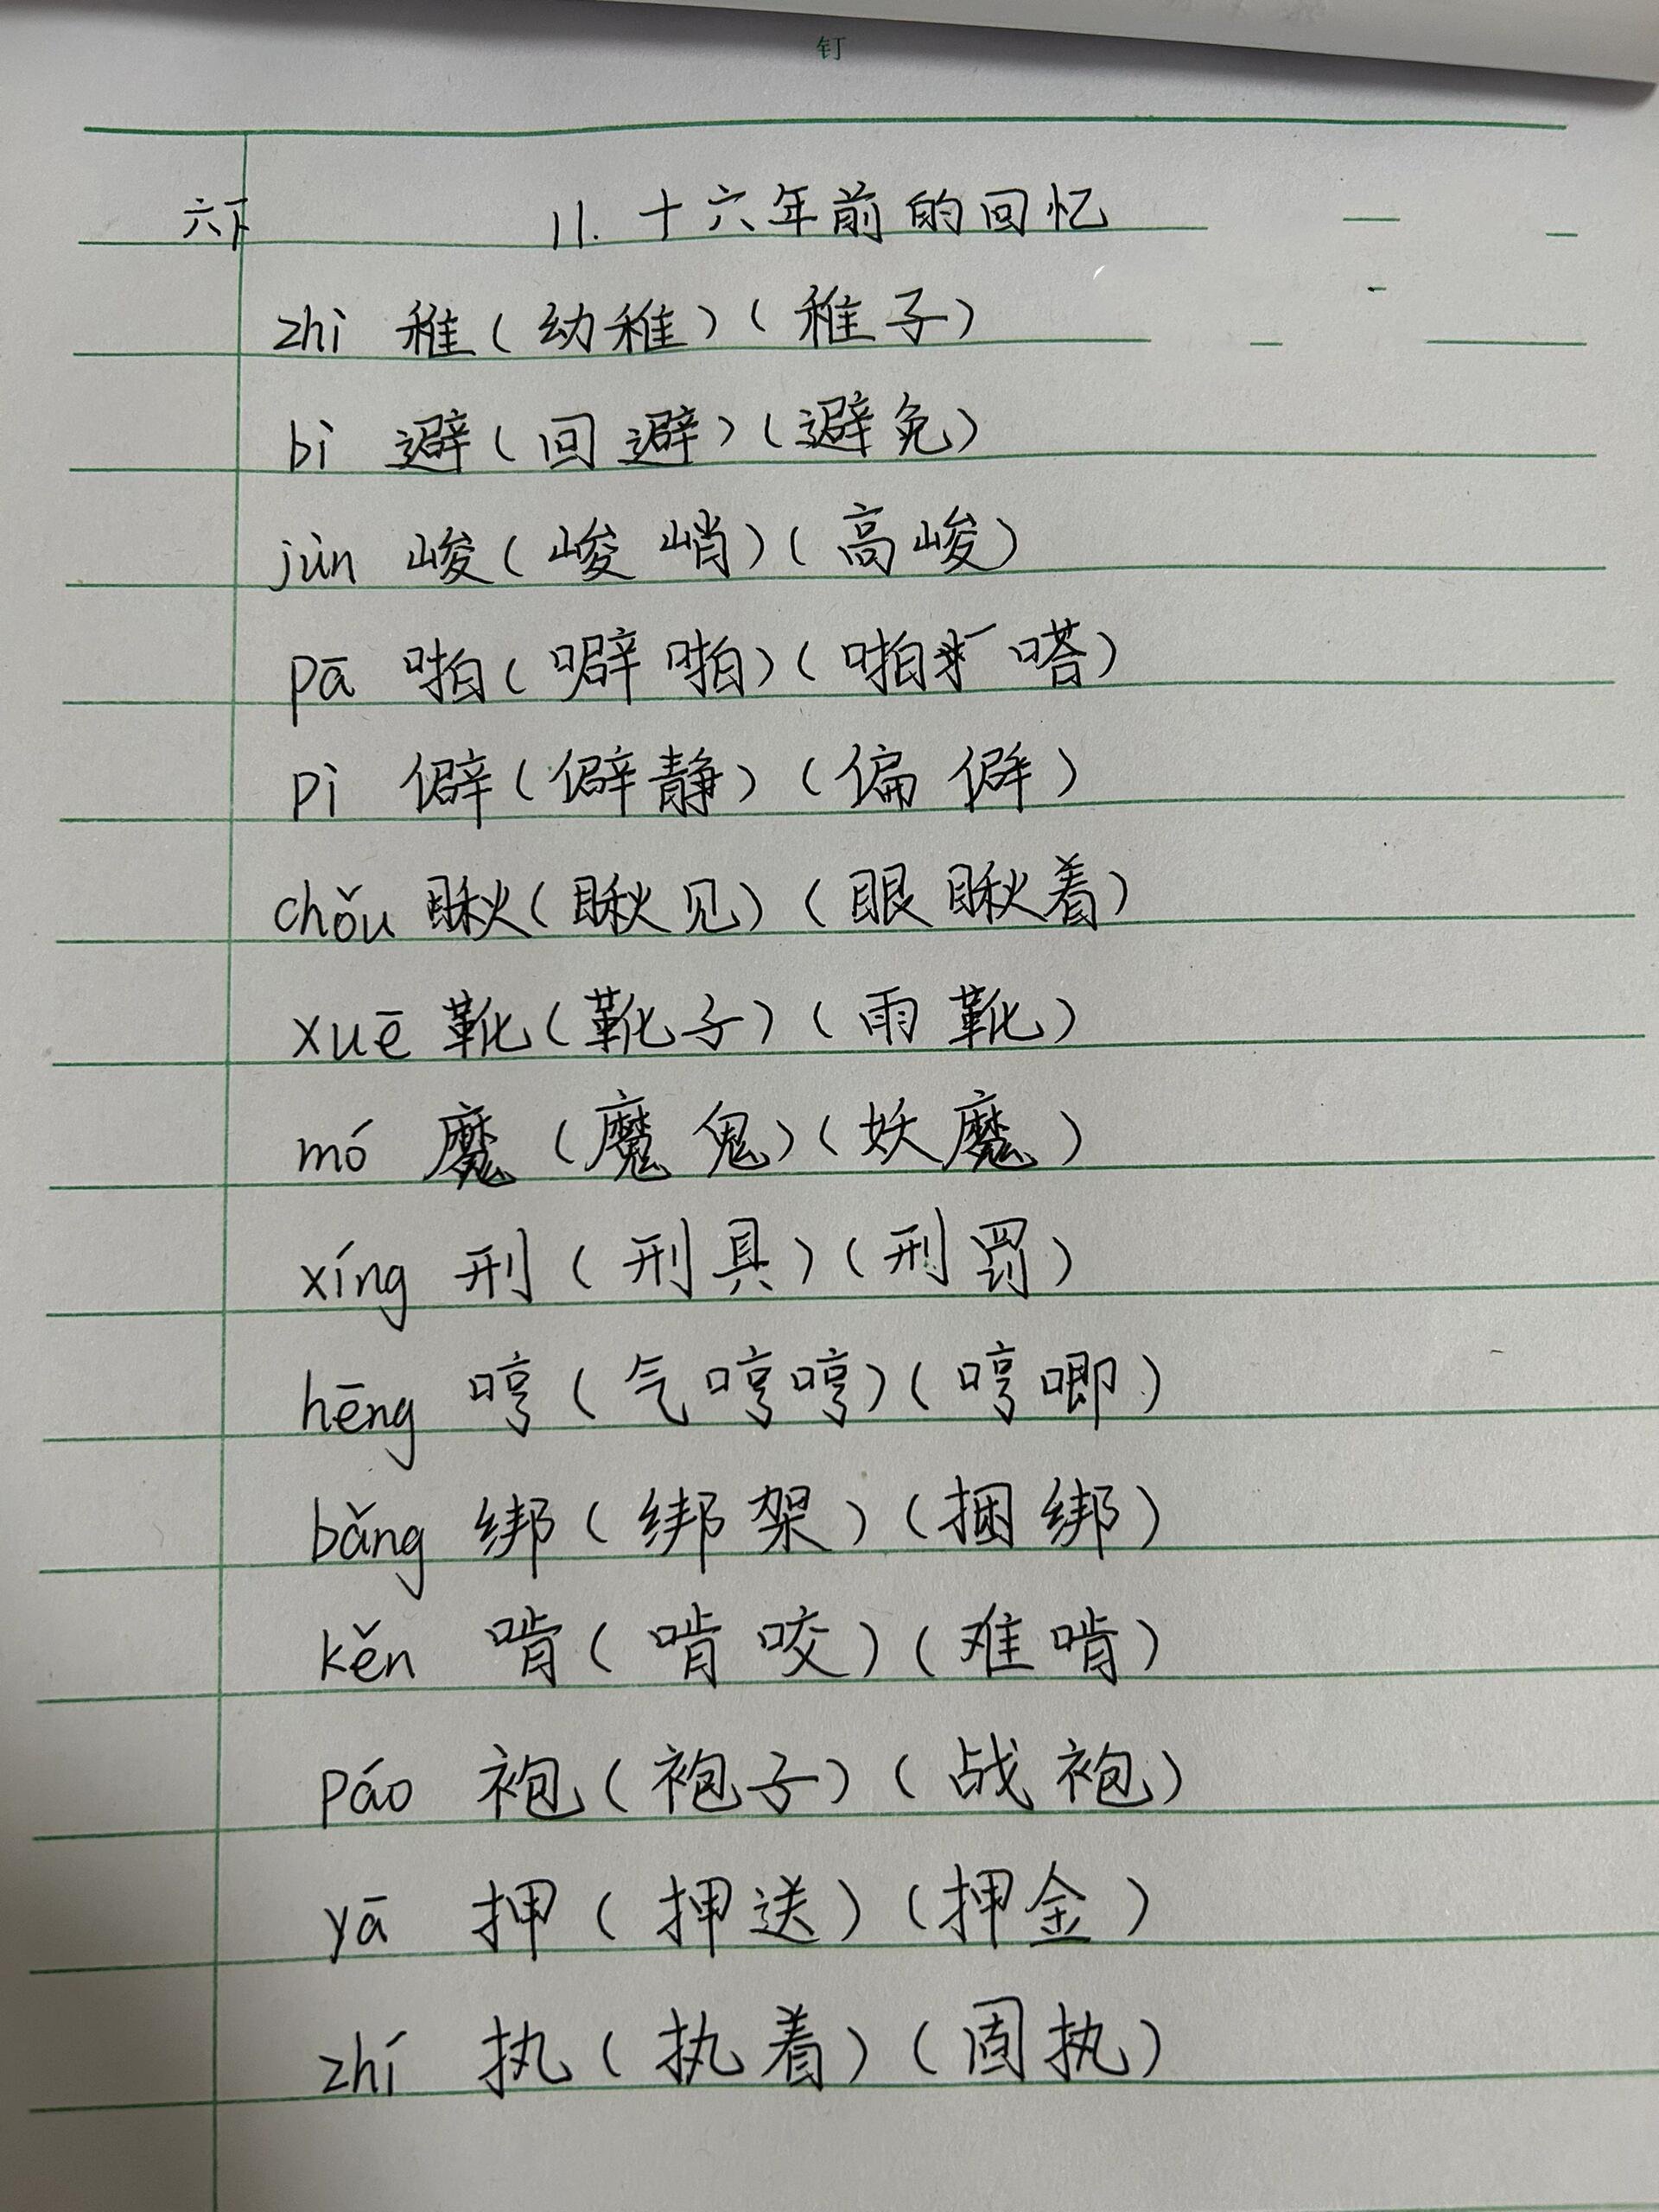 钉
六下 11. 十六年前的回忆
zhì 稚(幼稚)(稚子)
bì 避(回避)(避免)
jùn 峻(峻峭)(高峻)
pā 啪(噼啪)(啪嗒)
pì 僻(僻静)(偏僻)
chǒu 瞅(瞅见)(眼瞅着)
xuē 靴(靴子)(雨靴)
mó 魔(魔鬼)(妖魔)
xíng 刑(刑具)(刑罚)
hēng 哼(气哼哼)(哼唧)
bǎng 绑(绑架)(捆绑)
kěn 啃(啃咬)(难啃)
páo 袍(袍子)(战袍)
yā 押(押送)(押金)
zhí 执(执着)(固执)